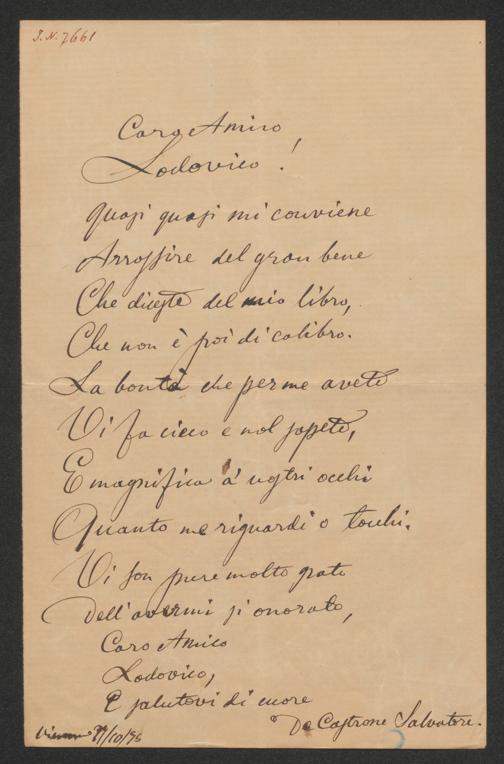 I.N. 7661
Caro Amico,
Lodovico!
Quasi quasi mi conviene
Arrossire del gran bene
Che diceste del mio libro,
Che non è poi di calibro.
La bontà che per me avete
Vi fa cieco e nol sapete,
E magnifica a' vostri occhi
Quanto me riguardi o tocchi.
Vi son pure molto grato
Dell'avermi sì onorato,
Caro Amico
Lodovico,
E salutovi di cuore
De Castrone Salvatore.
/10/95